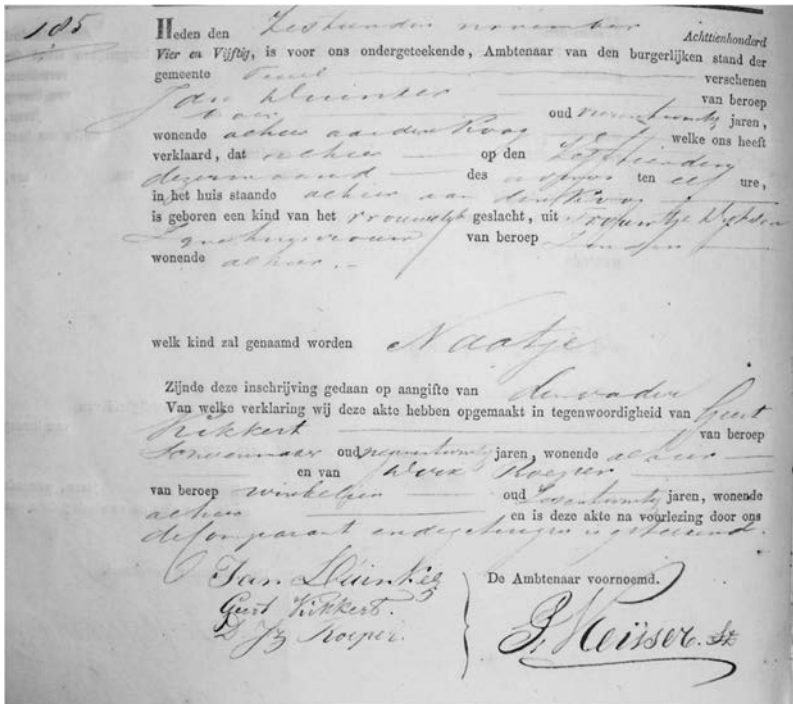 185
Heden den Zestienden november Achttienhonderd
Vier en Vijftig, is voor ons ondergeteekende, Ambtenaar van den burgerlijken stand der
gemeente Texel verschenen
Jan Duinker van beroep
oud jaren,
wonende alhier aan den Koog welke ons heeft
verklaard, dat alhier op den
dezer maand des ten elf ure,
in het huis staande alhier aan den Koog
is geboren een kind van het vrouwelijk geslacht, uit Trouwtje
van beroep
wonende alhier.
welk kind zal genaamd worden Naatje
Zijnde deze inschrijving gedaan op aangifte van den vader
Van welke verklaring wij deze akte hebben opgemaakt in tegenwoordigheid van Geert
Kikkert van beroep
Schoenmaker oud jaren, wonende alhier
en van Dirk Roeper
van beroep winkelier oud jaren, wonende
alhier en is deze akte na voorlezing door ons
de Comparant en de getuigen geteekend.
Jan Duinker
Geert Kikkert.
D Jz Roeper.
De Ambtenaar voornoemd.
P. Keijser. Sz